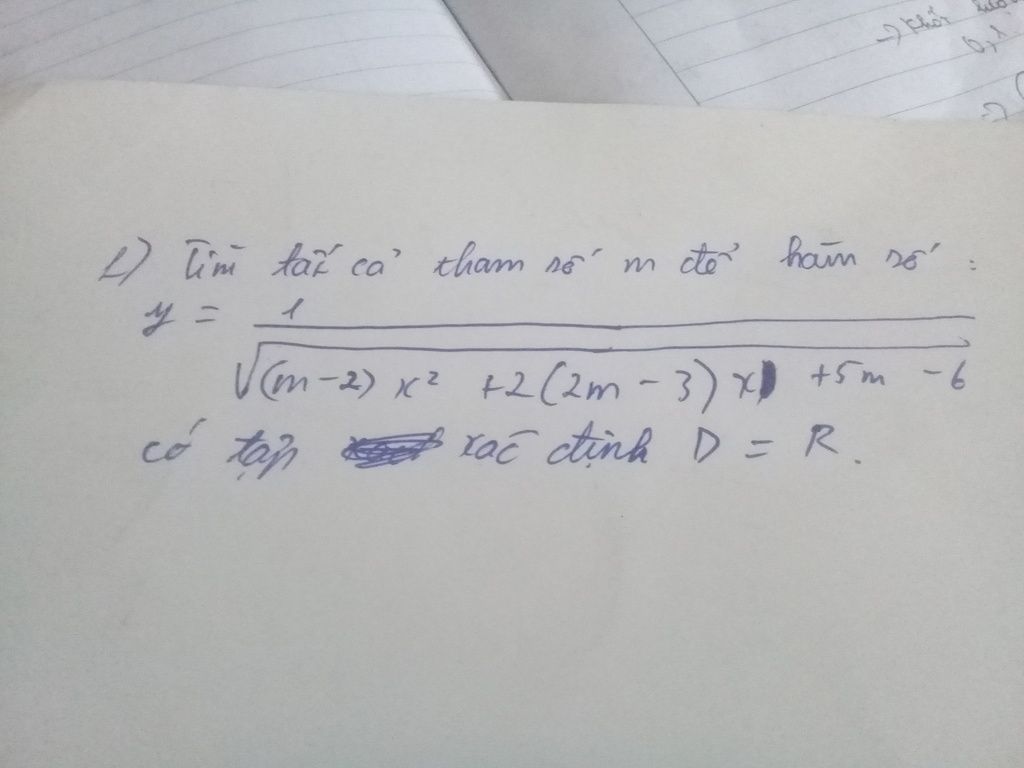 → khối
1) Tìm tất cả tham số m để hàm số :
y = 1 / √((m-2) x² +2(2m-3) x +5m -6)
có tập xác định D = R.